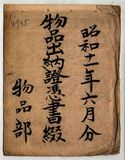 昭和十一年六月分
物品出納證憑書綴
物品部